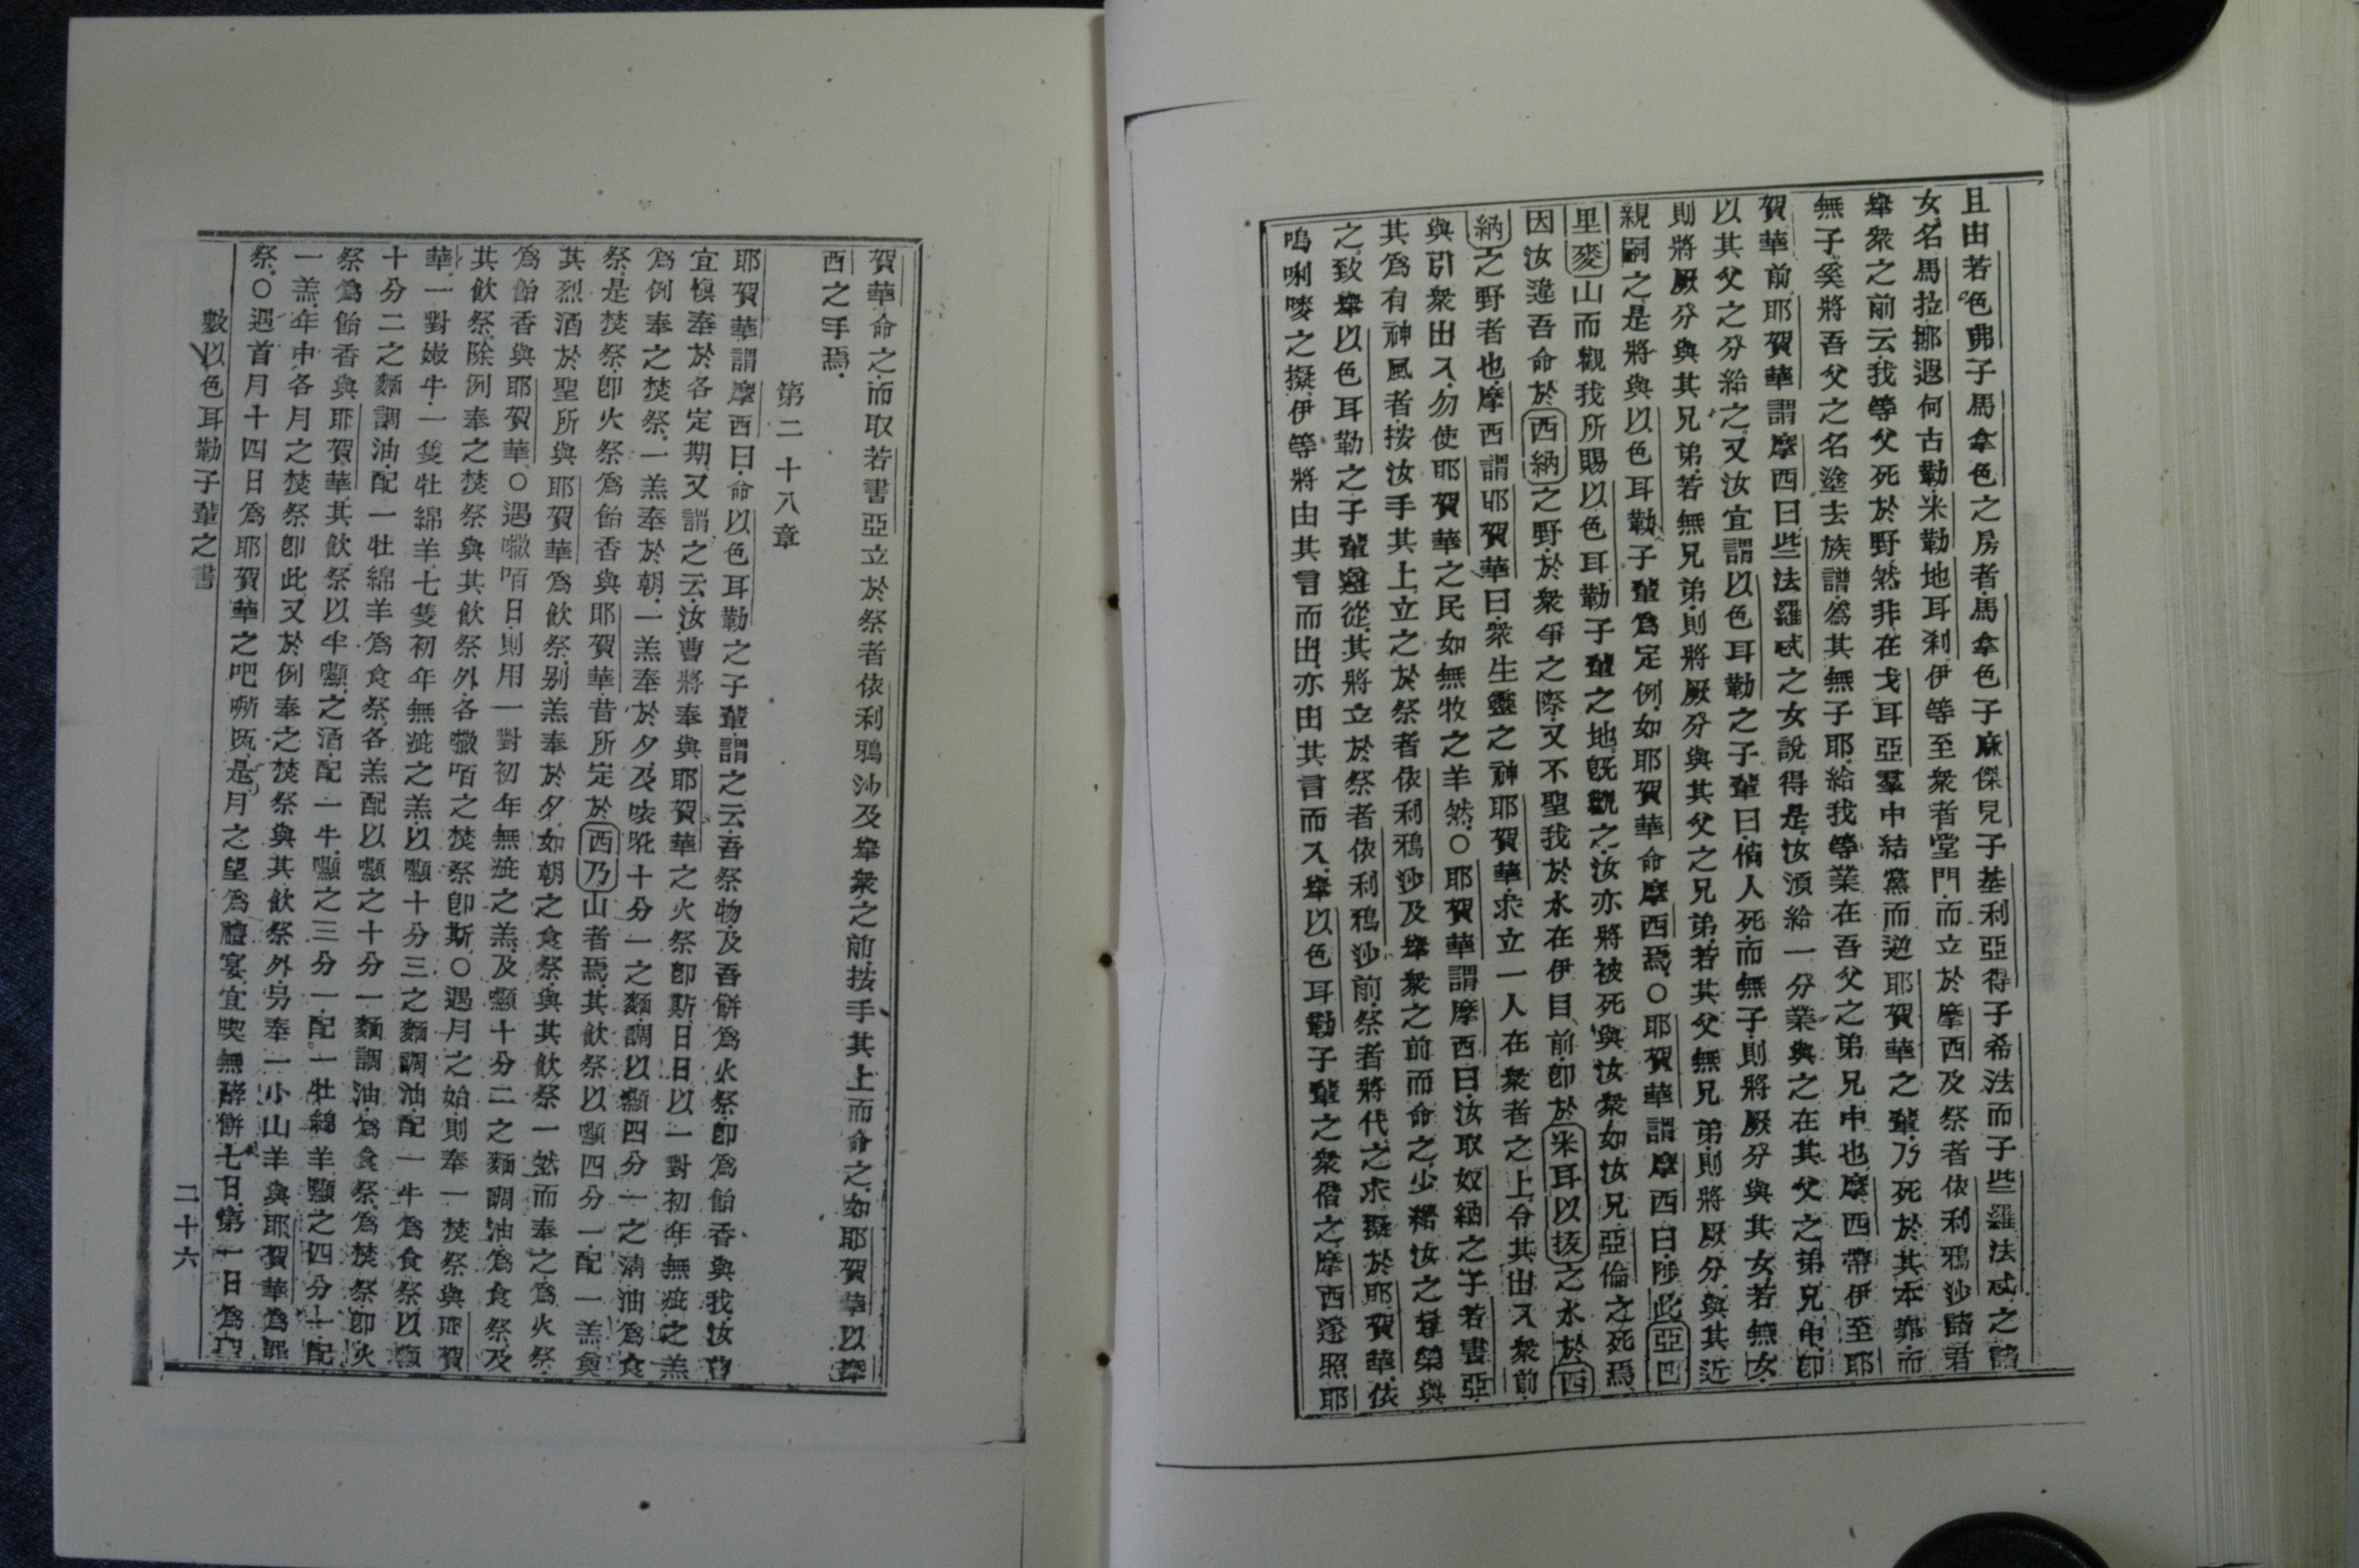 且由若色弗子馬拿色之房者馬拿色子麻傑兒子基利亞得子希法而子些羅法忒之諸
女名馬拉挪遐何古勒米勒地耳剎伊等至衆者堂門而立於摩西及祭者依利鴉沙諸君
羣衆之前云我等父死於野然非在戈耳亞羣中結黨而逆耶賀華之輩乃死於其本罪而
無子奚將吾父之名塗去族譜為其無子耶給我等業在吾父之弟兄中也摩西帶伊至耶
賀華前耶賀華謂摩西曰些法羅忒之女說得是汝須給一分業與之在其父之弟兄中卽
以其父之分給之又汝宜謂以色耳勒之子輩曰倘人死而無子則將厥分與其女若無女
則將厥分與其兄弟若無兄弟則將厥分與其父之兄弟若其父無兄弟則將厥分與其近
親嗣之是將與以色耳勒子輩爲定例如耶賀華命摩西焉○耶賀華謂摩西曰陟此亞巴
里麥山而觀我所賜以色耳勒子輩之地旣觀之汝亦將被死與汝衆如汝兄亞倫之死焉
因汝違吾命於西納之野於衆爭之際又不聖我於水在伊目前卽於米耳以抜之水於西
納之野者也摩西謂耶賀華曰衆生靈之神耶賀華求立一人在衆者之上令其出入衆前
與引衆出入勿使耶賀華之民如無牧之羊然○耶賀華謂摩西曰汝取奴納之子若書亞
其爲有神風者按汝手其上立之於祭者依利鴉沙及羣衆之前而命之少將汝之尊榮與
之致羣以色耳勒之子輩遵從其將立於祭者依利鴉沙前祭者將代之求擬於耶賀華依
嗚唎嘜之擬伊等將由其言而出亦由其言而入羣以色耳勒子輩之衆偕之摩西遂照耶
賀華命之而取若書亞立於祭者依利鴉沙及羣衆之前按手其上而命之如耶賀華以摩
西之手焉
第二十八章
耶賀華謂摩西曰命以色耳勒之子輩謂之云吾祭物及吾餅爲火祭卽爲飴香與我汝曹
宜愼奉於各定期又謂之云汝曹將奉與耶賀華之火祭卽斯日日以一對初年無疵之羔
爲例奉之焚祭一羔奉於朝一羔奉於夕及咳𠸄十分一之麵調以㘋四分一之淸油爲食
祭是焚祭卽火祭爲飴香與耶賀華昔所定於西乃山者焉其飲祭以㘋四分一配一羔奠
其烈酒於聖所與耶賀華爲飲祭别羔奉於夕如朝之食祭與其飲祭一然而奉之爲火祭
爲飴香與耶賀華○遇𠿕咟日則用一對初年無疵之羔及㘋十分二之麵調油爲食祭及
其飲祭除例奉之焚祭與其飲祭外各𠿕咟之焚祭卽斯○遇月之始則奉一焚祭與耶賀
華一對嫩牛一隻牡綿羊七隻初年無疵之羔以㘋十分三之麵調油配一牛爲食祭以㘋
十分二之麵調油配一牡綿羊爲食祭各羔配以㘋之十分一麵調油爲食祭爲焚祭卽火
祭爲飴香與耶賀華其飲祭以半㘋之酒配一牛㘋之三分一配一牡綿羊㘋之四分一配
一羔年中各月之焚祭卽此又於例奉之焚祭與其飲祭外另奉一小山羊與耶賀華爲罪
祭○遇首月十四日爲耶賀華之吧㗭旣是月之望爲禮宴宜喫無酵餅七日第一日爲聖
數以色耳勒子輩之書
二十六